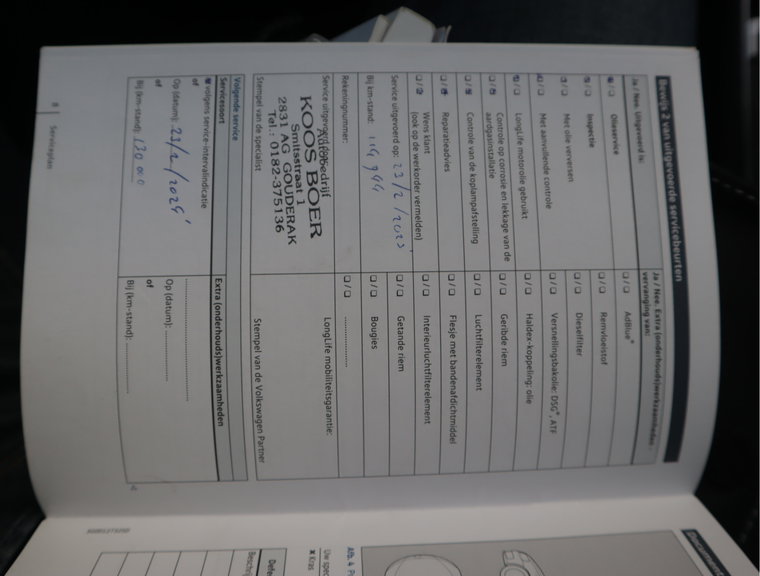 Bewijs 2 van uitgevoerde servicebeurten
Ja / Nee. Uitgevoerd is:
Olieservice
Inspectie
Met olie verversen
Met aanvullende controle
LongLife motorolie gebruikt
Controle op corrosie en lekkage van de
aardgasinstallatie
Controle van de koplampafstelling
Reparatieadvies
Wens klant
(ook op de werkorder vermelden)
Service uitgevoerd op: 23/2/2023
Bij km-stand:
Rekeningnummer:
Service uitgevoerd door:
KOOS BOER
Smitsstraat 1
2831 AG GOUDERAK
Tel.: 0182-375136
Stempel van de specialist
Ja / Nee. Extra (onderhouds)werkzaamheden -
vervanging van:
AdBlue®
Remvloeistof
Dieselfilter
Versnellingsbakolie: DSG®, ATF
Haldex-koppeling: olie
Geribde riem
Luchtfilterelement
Flesje met bandenafdichtmiddel
Interieurluchtfilterelement
Getande riem
Bougies
LongLife mobiliteitsgarantie:
Stempel van de Volkswagen Partner
Volgende service
Servicesoort
volgens service-intervalindicatie
of
Op (datum): 23/2/2025
of
Bij (km-stand): 130 000
Extra (onderhouds)werkzaamheden
Op (datum):
of
Bij (km-stand):
8 Serviceplan
Afb. 4
Uw spec
Kras
Defe
Beschri